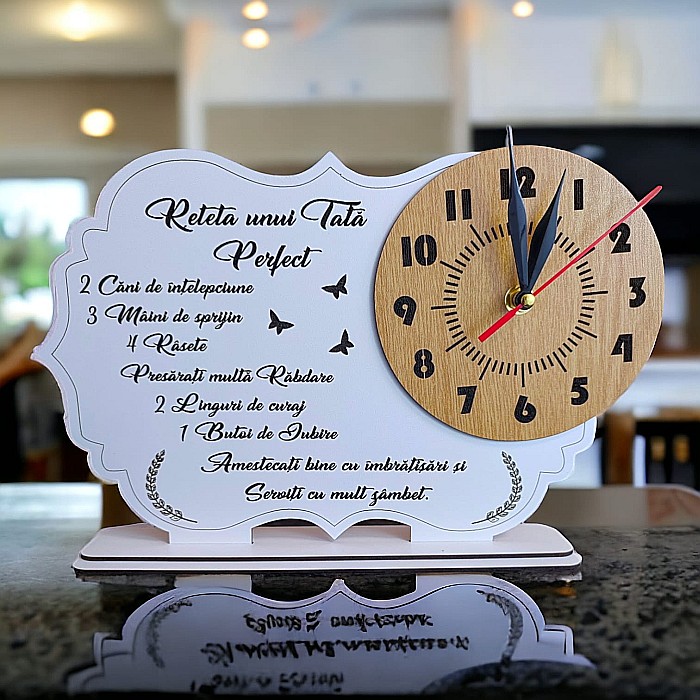 Reteta unui Tată
Perfect
2 Căni de înțelepciune
3 Mâini de sprijin
4 Râsete
Presărați multă Răbdare
2 Linguri de curaj
1 Butoi de Iubire
Amestecați bine cu îmbrățișări și
Serviți cu mult zâmbet.
12
1
2
3
4
5
6
7
8
9
10
11